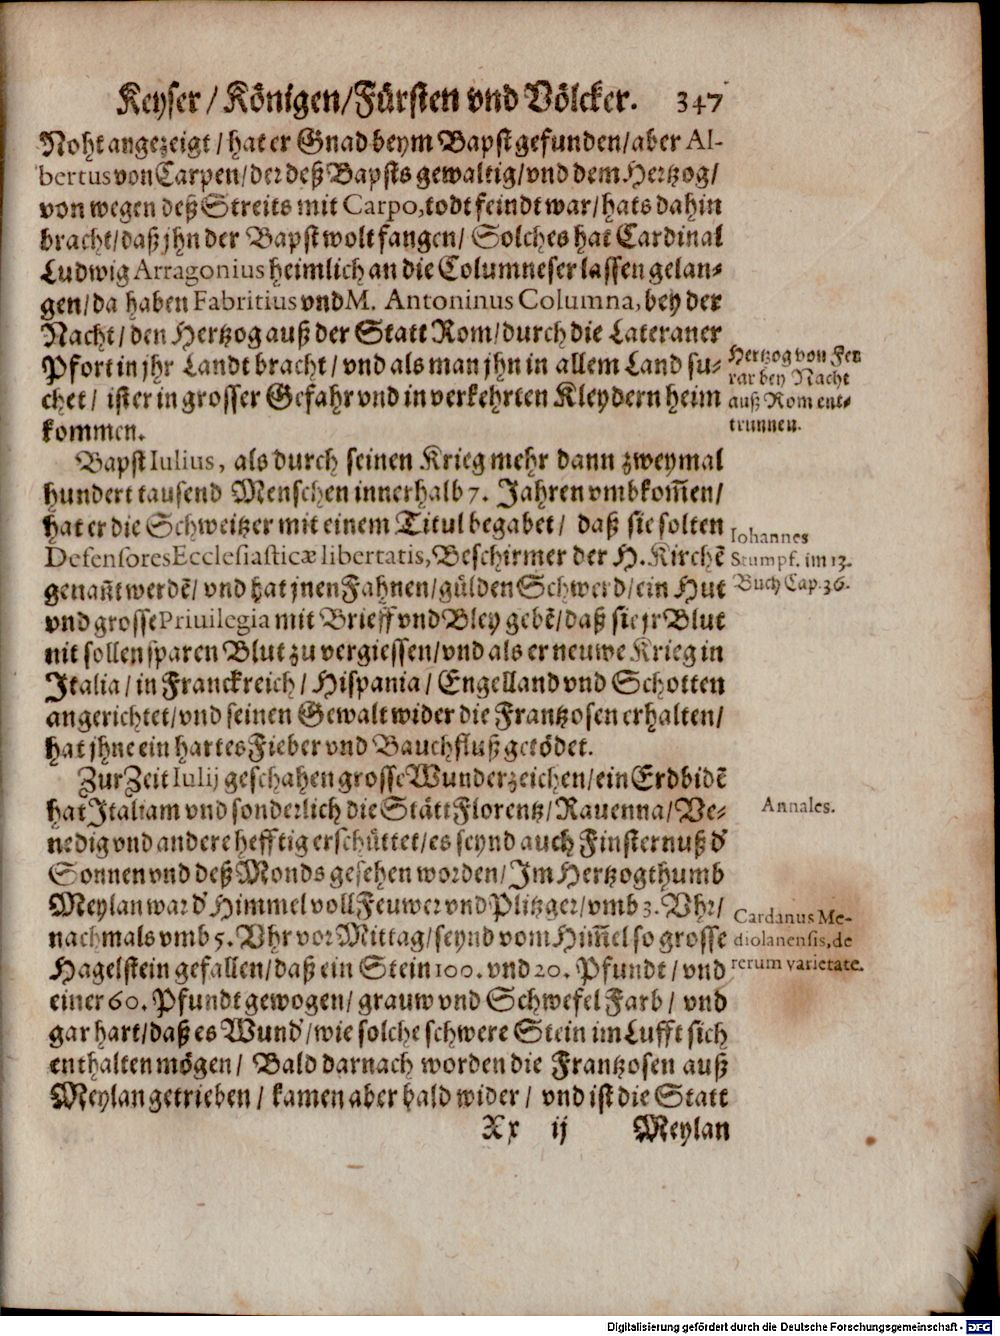 Keyser / Königen / Fürsten vnd Völcker. 347
Noht angezeigt / hat er Gnad beym Bapst gefunden / aber Al-
bertus von Carpen / der deß Bapsts gewaltig / vnd dem Hertzog /
von wegen deß Streits mit Carpo, todt feindt war / hats dahin
bracht / daß jhn der Bapst wolt fangen / Solches hat Cardinal
Ludwig Arragonius heimlich an die Columneser lassen gelan-
gen / da haben Fabritius vnd M. Antoninus Columna, bey der
Nacht / den Hertzog auß der Statt Rom / durch die Lateraner
Pfort in jhr Landt bracht / vnd als man jhn in allem Land su-
chet / ist er in grosser Gefahr vnd in verkehrten Kleydern heim
kommen.
Hertzog von Fer
rar bey Nacht
auß Rom ent-
trunnen.
Bapst Iulius, als durch seinen Krieg mehr dann zweymal
hundert tausend Menschen innerhalb 7. Jahren vmbkom̃en /
hat er die Schweitzer mit einem Titul begabet / daß sie solten
Defensores Ecclesiasticæ libertatis, Beschirmer der H. Kirchẽ
genañt werdẽ / vnd hat jnen Fahnen / gülden Schwerd / ein Hut
vnd grosse Priuilegia mit Brieff vnd Bley gebẽ / daß sie jr Blut
nit sollen sparen Blut zu vergiessen / vnd als er neuwe Krieg in
Italia / in Franckreich / Hispania / Engelland vnd Schotten
angerichtet / vnd seinen Gewalt wider die Frantzosen erhalten /
hat jhne ein hartes Fieber vnd Bauchfluß getödet.
Iohannes
Stumpf. im 13.
Buch Cap. 36.
Zur Zeit Iulij geschahen grosse Wunderzeichen / ein Erdbidẽ
hat Italiam vnd sonderlich die Stätt Florentz / Rauenna / Ve-
nedig vnd andere hefftig erschüttet / es seynd auch Finsternuß d'
Sonnen vnd deß Monds gesehen worden / Im Hertzogthumb
Meylan war d' Himmel voll Feuwer vnd Plitzger / vmb 3. Vhr /
nachmals vmb 5. Vhr vor Mittag / seynd vom Him̃el so grosse
Hagelstein gefallen / daß ein Stein 100. vnd 20. Pfundt / vnd
einer 60. Pfundt gewogen / grauw vnd Schwefel Farb / vnd
gar hart / daß es Wund' / wie solche schwere Stein im Lufft sich
enthalten mögen / Bald darnach worden die Frantzosen auß
Meylan getrieben / kamen aber bald wider / vnd ist die Statt
Annales.
Cardanus Me-
diolanensis, de
rerum varietate.
Xx ij Meylan
Digitalisierung gefördert durch die Deutsche Forschungsgemeinschaft - DFG